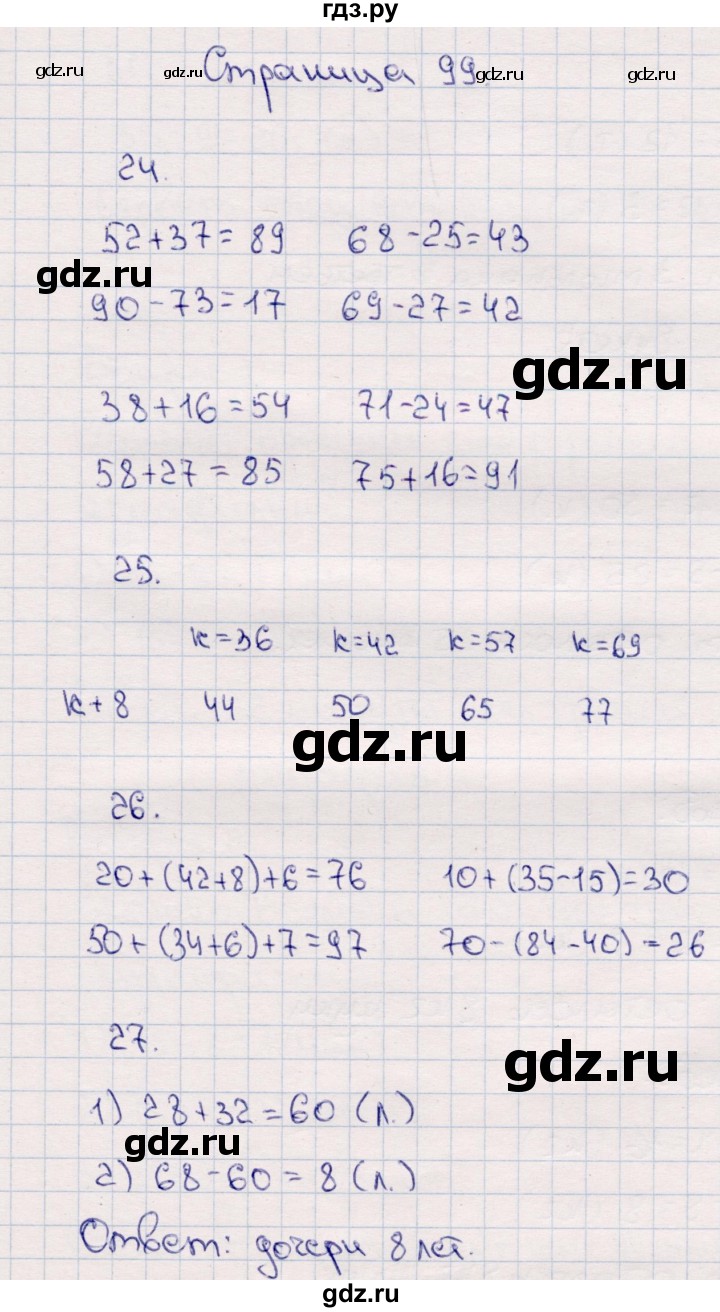 гдз.ру
gdz.ru gdz.ru Страница 99. gdz.ru gdz.ru
24.
52+37=89 68-25=43
gdz.ru
90-73=17 69-27=42
gdz.ru
38+16=54 71-24=47
58+27=85 75+16=91
25.
к=36 к=42 к=57 к=69
к+8 44 50 65 77
gdz.ru
26.
20+(42+8)+6=76 10+(35-15)=30
50+(34+6)+7=97 70-(84-40)=26
27.
gdz.ru
1) 28+32=60 (л.)
gdz.ru
2) 68-60=8 (л.)
Ответ: дочери 8 лет.
gdz.ru